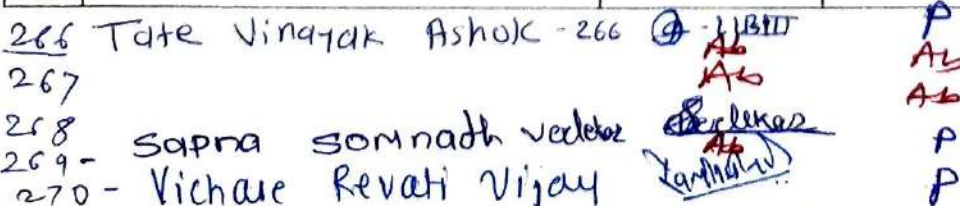 266 Tate Vinayak Ashok - 266 P
Ab Ab
267 Ab Ab
268 Sapna Somnath P
269 - Ab
270 - Vichare Revati Vijay P